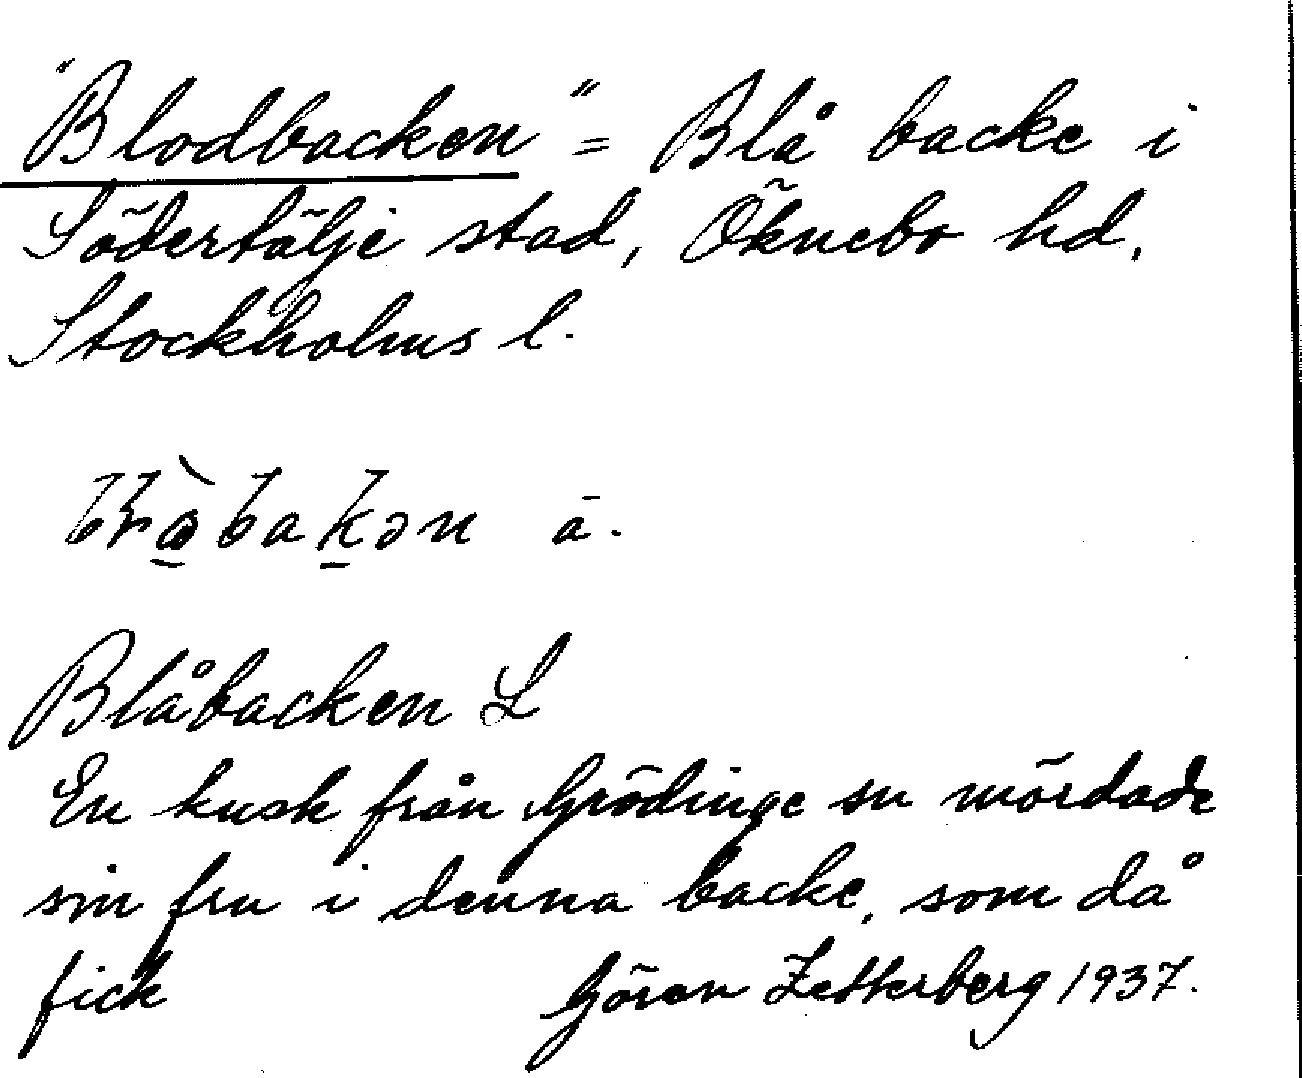 "Blodbacken" = Blå backe i
Södertälje stad, Öknebo hd.
Stockholms l.
ā.
Blåbacken L
En kusk från Grödinge sn mördade
sin fru i denna backe, som då
fick Göran Zetterberg 1937.